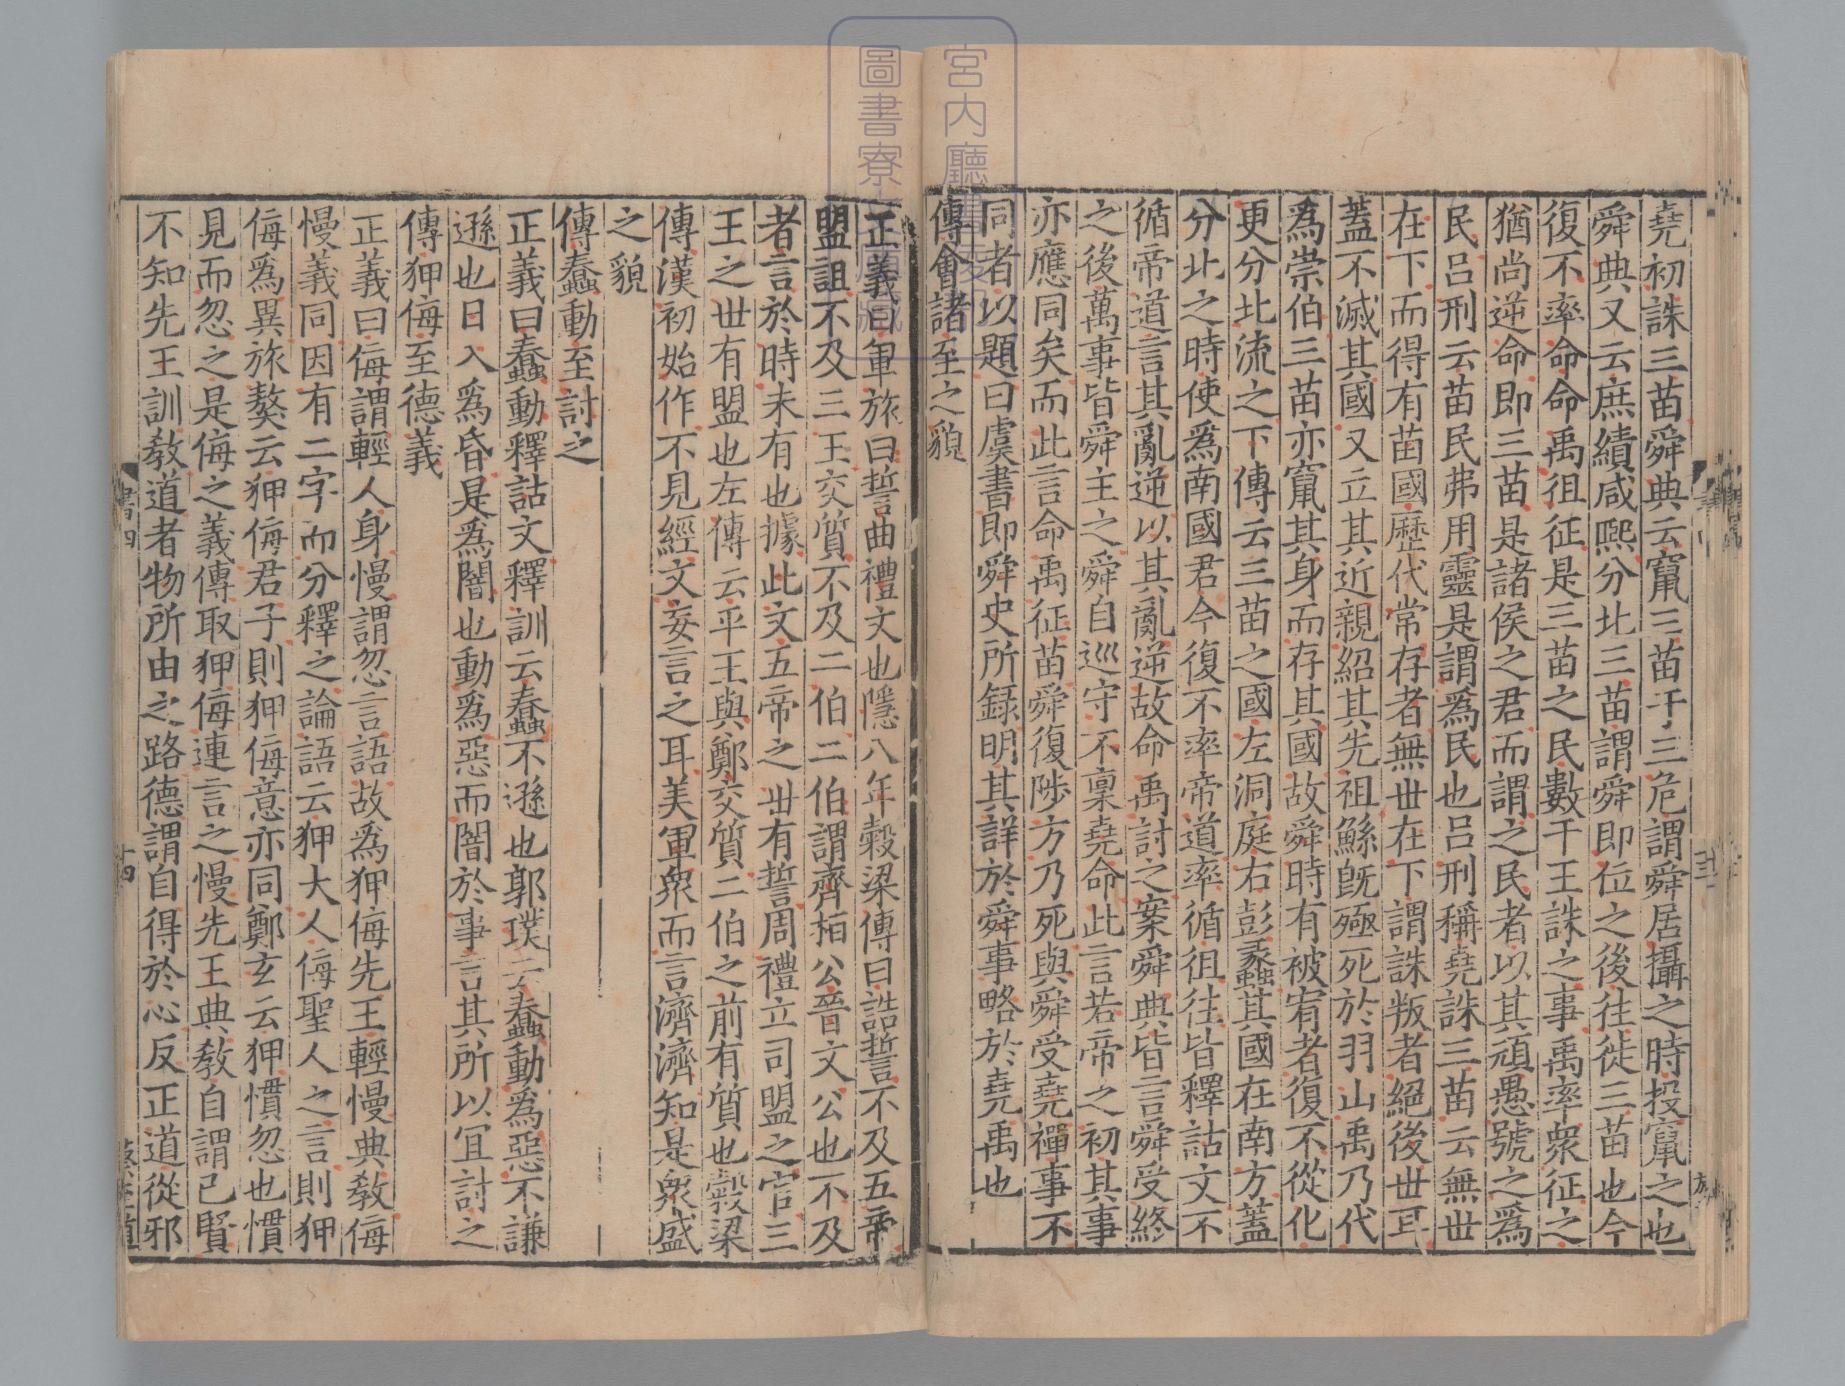 堯初誅三苗舜典云竄三苗于三危謂舜居攝之時投竄之也
舜典又云庶績咸熙分北三苗謂舜即位之後往徙三苗也今
復不率命命禹徂征是三苗之民數干王誅之事禹率衆征之
猶尚逆命即三苗是諸侯之君而謂之民者以其頑愚號之爲
民呂刑云苗民弗用靈是謂爲民也呂刑稱堯誅三苗云無世
在下而得有苗國歷代常存者無世在下謂誅叛者絕後世耳
蓋不滅其國又立其近親紹其先祖鯀旣殛死於羽山禹乃代
爲崇伯三苗亦竄其身而存其國故舜時有被宥者復不從化
更分北流之下傳云三苗之國左洞庭右彭蠡其國在南方蓋
分北之時使爲南國君今復不率帝道率循徂往皆釋詁文不
循帝道言其亂逆以其亂逆故命禹討之案舜典皆言舜受終
之後萬事皆舜主之舜自巡守不稟堯命此言若帝之初其事
亦應同矣而此言命禹征苗舜復陟方乃死與舜受堯禪事不
同者以題曰虞書即舜史所錄明其詳於舜事略於堯禹也
傳會諸至之貌
正義曰軍旅曰誓曲禮文也隱八年穀梁傳曰誥誓不及五帝
盟詛不及三王交質不及二伯二伯謂齊桓公晉文公也不及
者言於時未有也據此文五帝之世有誓周禮立司盟之官三
王之世有盟也左傳云平王與鄭交質二伯之前有質也穀梁
傳漢初始作不見經文妄言之耳美軍衆而言濟濟知是衆盛
之貌
傳蠢動至討之
正義曰蠢動釋詁文釋訓云蠢不遜也郭璞云蠢動爲惡不謙
遜也日入爲昏是爲闇也動爲惡而闇於事言其所以宜討之
傳狎侮至德義
正義曰侮謂輕人身慢謂忽言語故爲狎侮先王輕慢典敎侮
慢義同因有二字而分釋之論語云狎大人侮聖人之言則狎
侮爲異旅獒云狎侮君子則狎侮意亦同鄭玄云狎慣忽也慣
見而忽之是侮之義傳取狎侮連言之慢先王典敎自謂己賢
不知先王訓敎道者物所由之路德謂自得於心反正道從邪
書四
十四
宮内廳
圖書寮